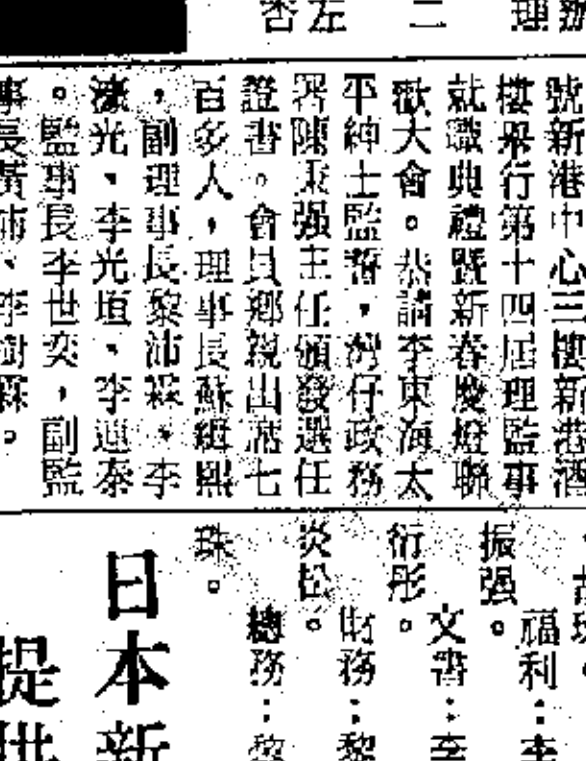 辦
理
二
左
否
號新港中心三樓新港酒
樓舉行第十四屆理監事
就職典禮暨新春慶燈聯
歡大會。恭請李東海太
平紳士監誓，灣仔政務
署陳秉强主任頒發選任
證書。會員鄉親出席七
百多人，理事長蘇緝熙
，副理事長黎沛霖、李
濂光、李光垣、李運泰
。監事長李世奕，副監
事長黃沛、李樹霖。
福利：李
振强。
文書：李
衍彤。
財務：黎
炎松。
總務：黎
珠。
日本新
提供